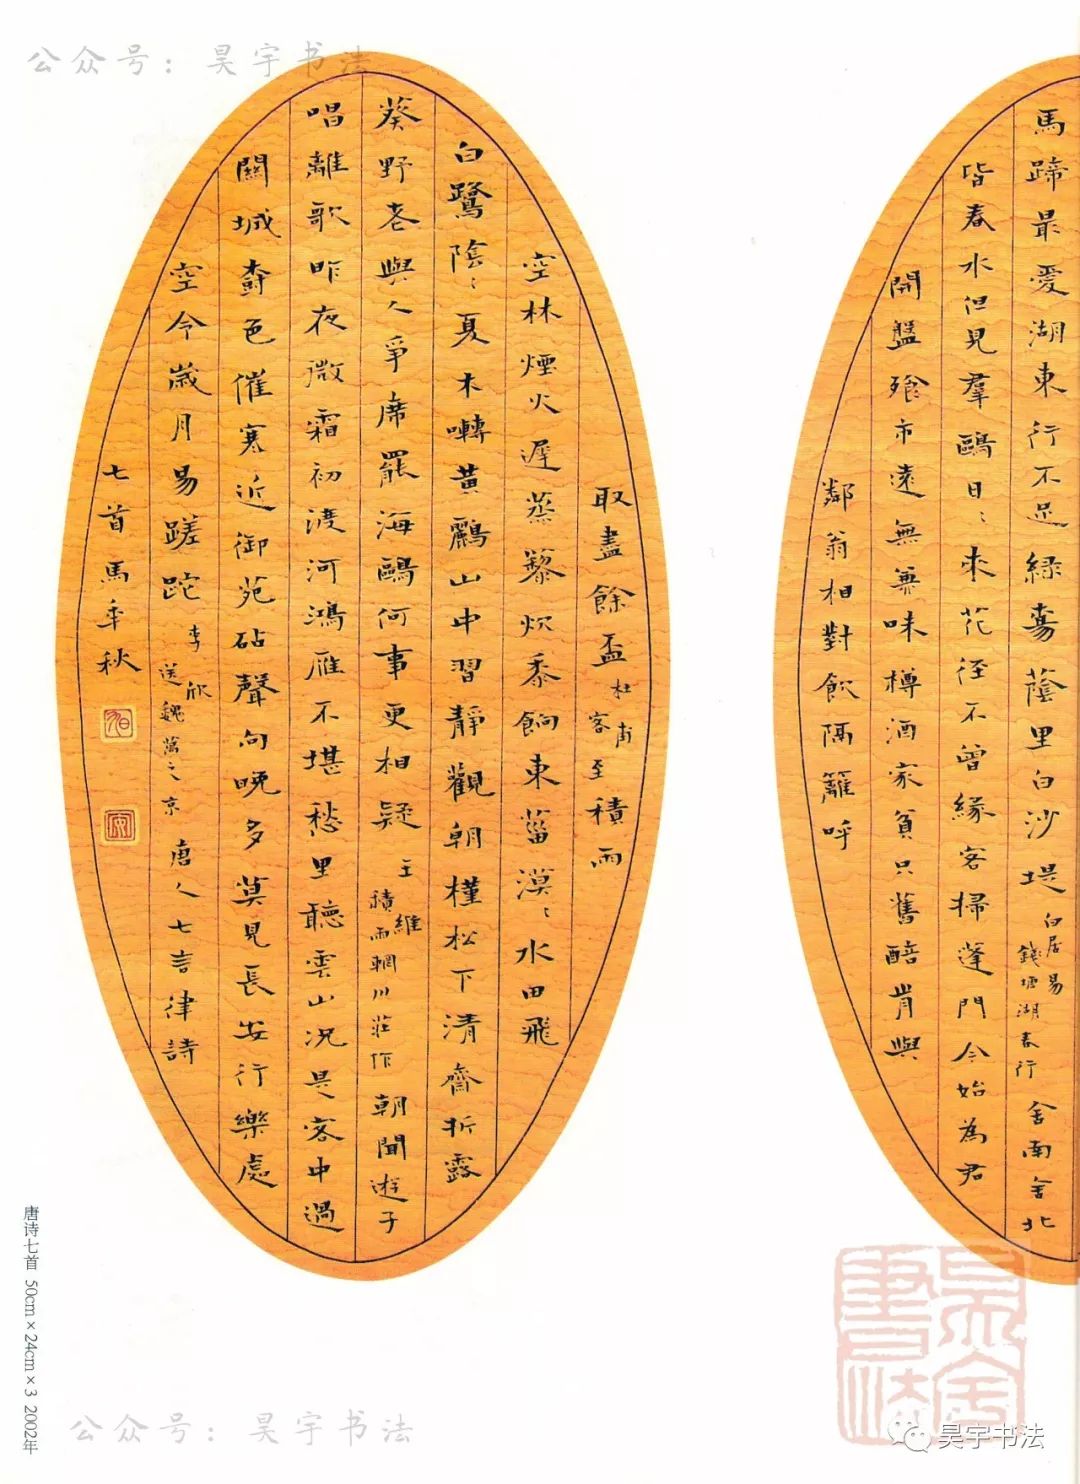 公众号：昊宇书法
馬蹄最愛湖東行不足綠楊蔭里白沙堤白居易錢塘湖春行舍南舍北
皆春水但見羣鷗日〻來花徑不曾緣客掃蓬門今始為君
開盤飱市遠無兼味樽酒家貧只舊醅肯與
鄰翁相對飲隔籬呼
取盡餘盃杜甫客至積雨
空林煙火遲蒸藜炊黍餉東菑漠〻水田飛
白鷺陰〻夏木囀黃鸝山中習靜觀朝槿松下清齋折露
葵野老與人爭席罷海鷗何事更相疑王維積雨輞川莊作朝聞遊子
唱離歌昨夜微霜初渡河鴻雁不堪愁里聽雲山況是客中過
關城樹色催寒近御苑砧聲向晚多莫見長安行樂處
空令歲月易蹉跎李頎送魏萬之京唐人七言律詩
七首馬年秋
唐诗七首 50cm×24cm×3 2002年
公众号：昊宇书法
昊宇書法
昊宇书法